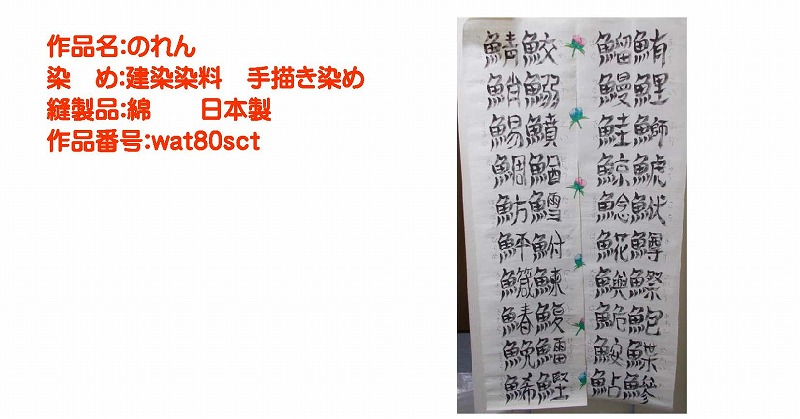 作品名:のれん
染　め:建染染料　手描き染め
縫製品:綿　　日本製
作品番号:wat80sct
鮪鯉鰤鯱鮲鱒鰶鮑鰈鰺
鰡鰻鮭鯨鯰𩸽鱮鮠鮟鮎
鮫鰯鱝鰌鱈鮒鰊鰒鱩鰹
鯖鮹鯣鯛魴鮃鱵鰆鮸鯑